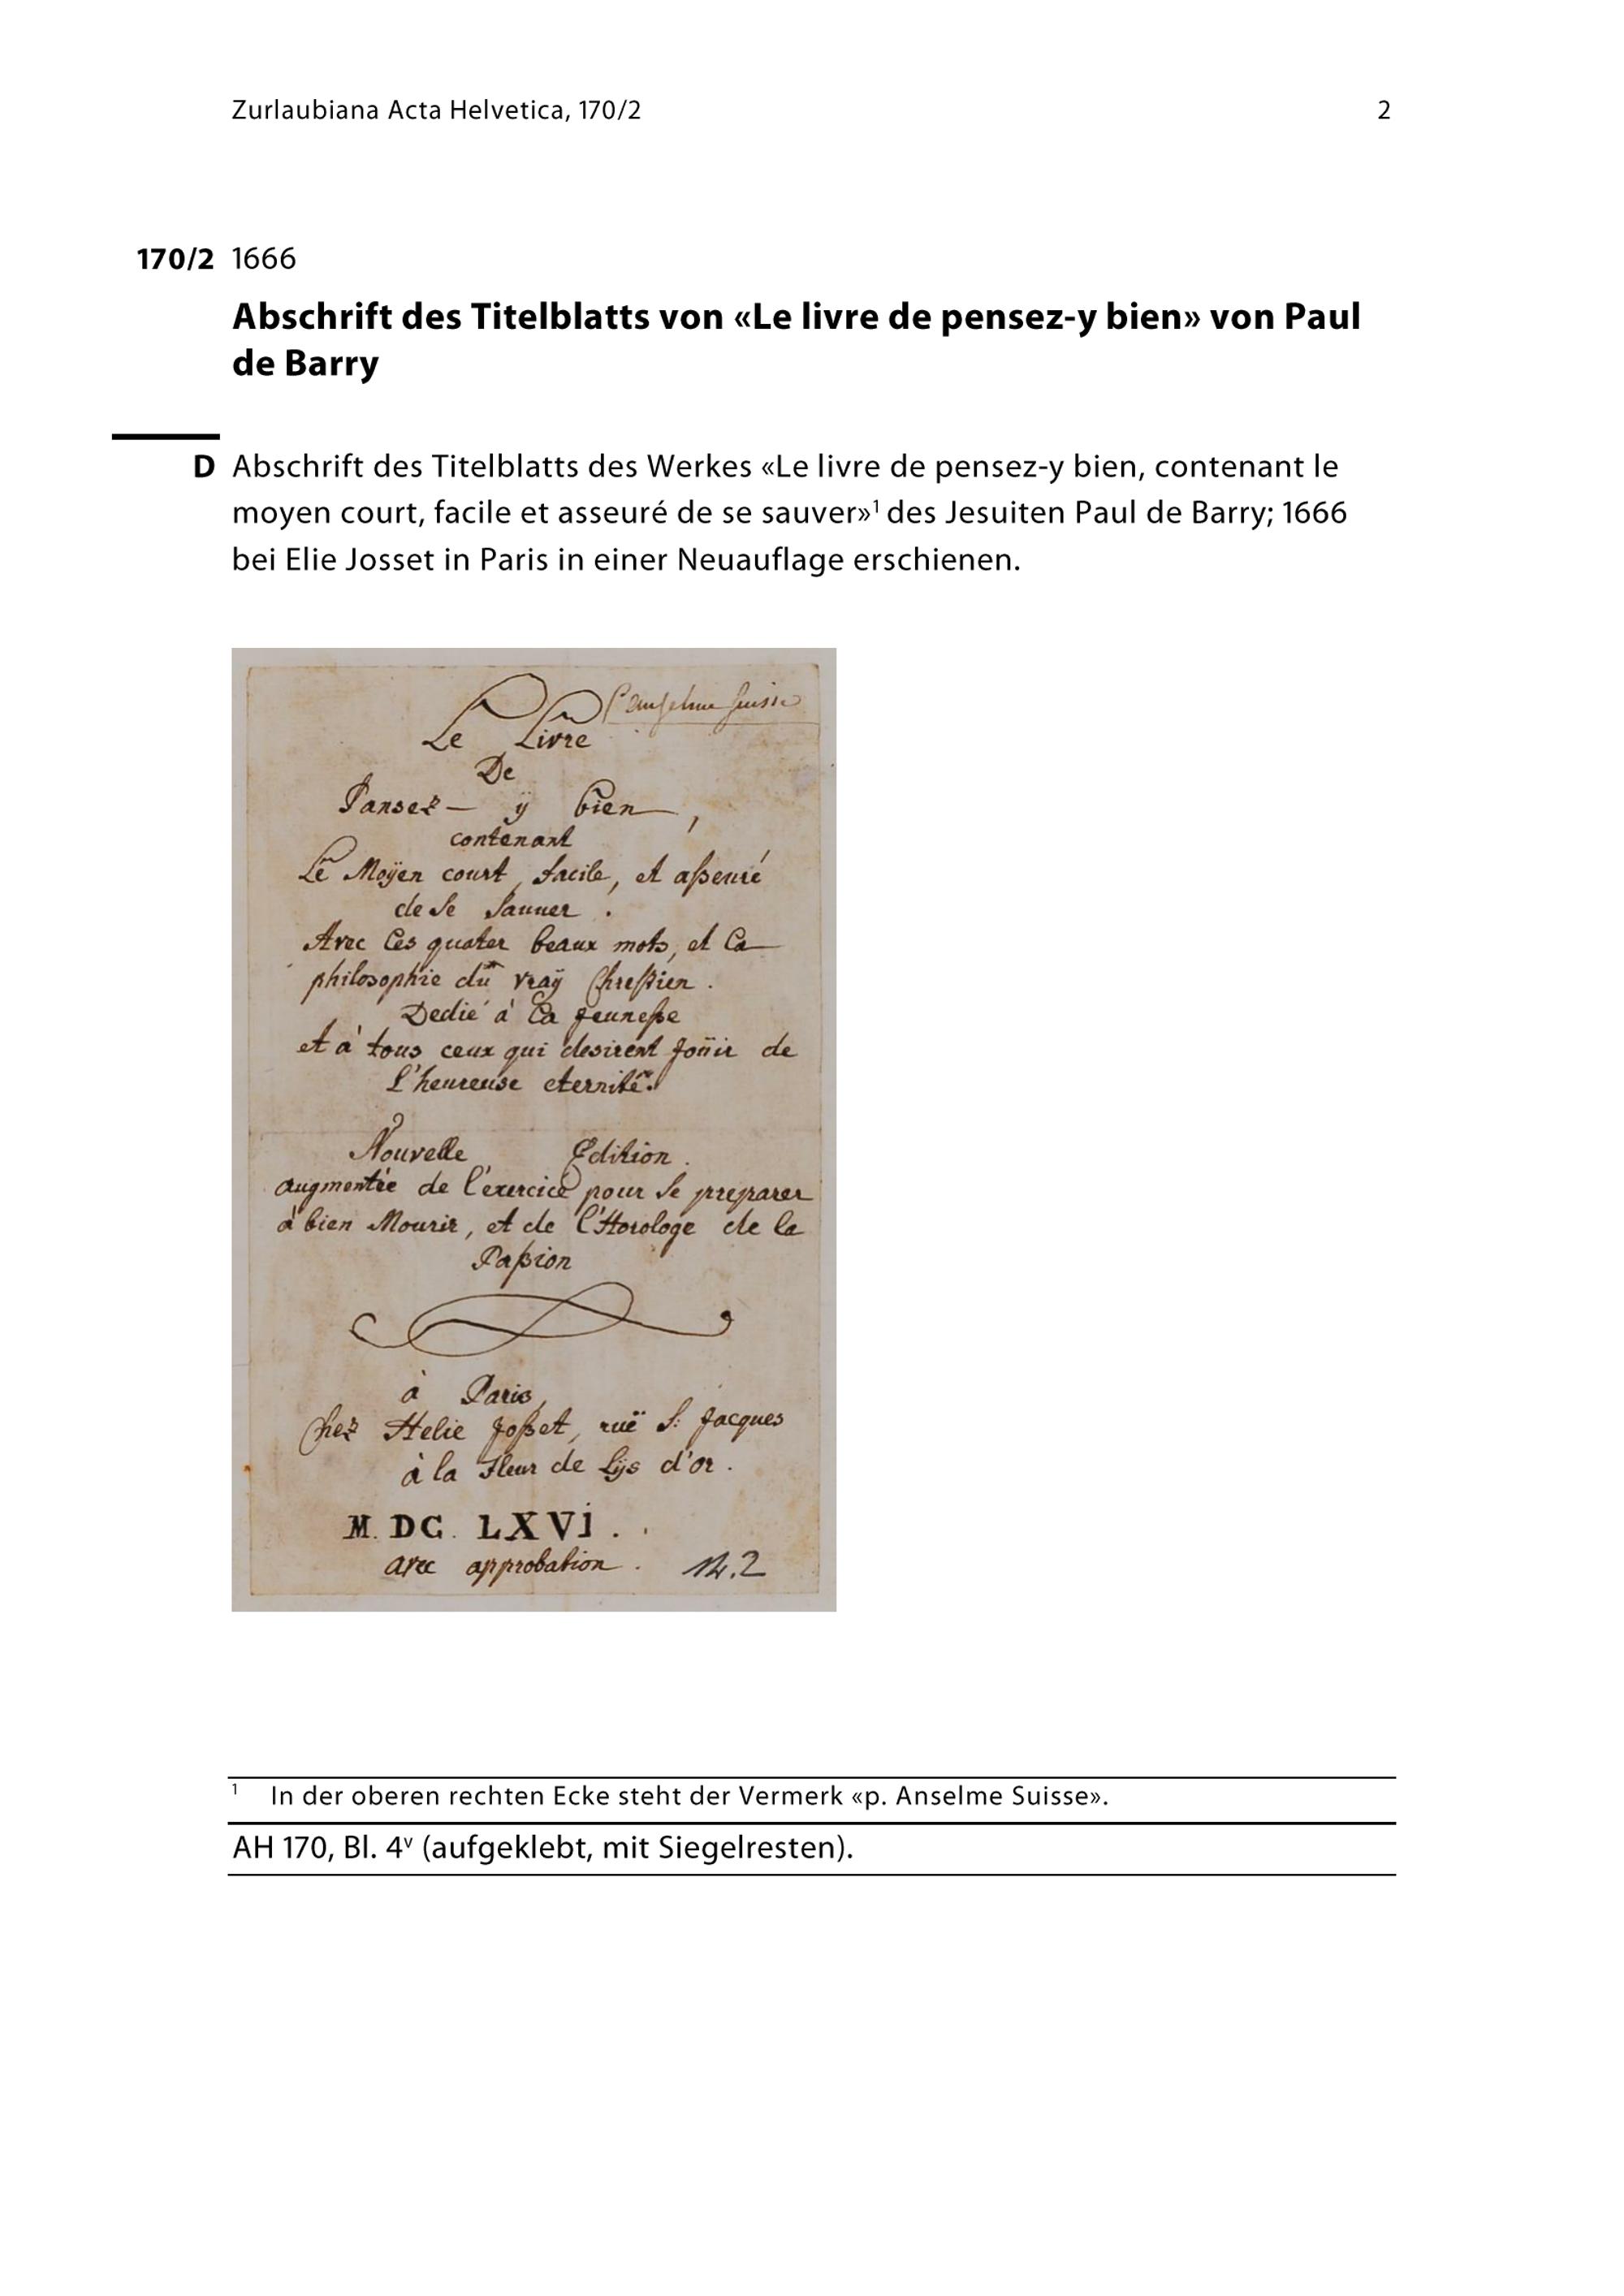 Zurlaubiana Acta Helvetica, 170/2 2
170/2 1666
Abschrift des Titelblatts von «Le livre de pensez-y bien» von Paul
de Barry
D Abschrift des Titelblatts des Werkes «Le livre de pensez-y bien, contenant le
moyen court, facile et asseuré de se sauver»¹ des Jesuiten Paul de Barry; 1666
bei Elie Josset in Paris in einer Neuauflage erschienen.
p. anselme suisse
Le Livre
De
Pansez- ÿ bien,
contenant
Le Moÿen court, facile, et aßeuré
de se sauuer.
Avec les quater beaux mots, et la
philosophie du vraÿ Chrestien.
Dedié à la jeuneße
et à tous ceux qui desirent joüir de
l'heureuse eternité.
Nouvelle Edition.
augmentée de l'exercice pour se preparer
à bien Mourir, et de l'Horologe de la
Paßion
à Paris,
Chez Helie Joßet, ruë S: Jacques
à la Fleur de Lÿs d'or.
M. DC. LXVI.
avec approbation. 14.2
1 In der oberen rechten Ecke steht der Vermerk «p. Anselme Suisse».
AH 170, Bl. 4ᵛ (aufgeklebt, mit Siegelresten).